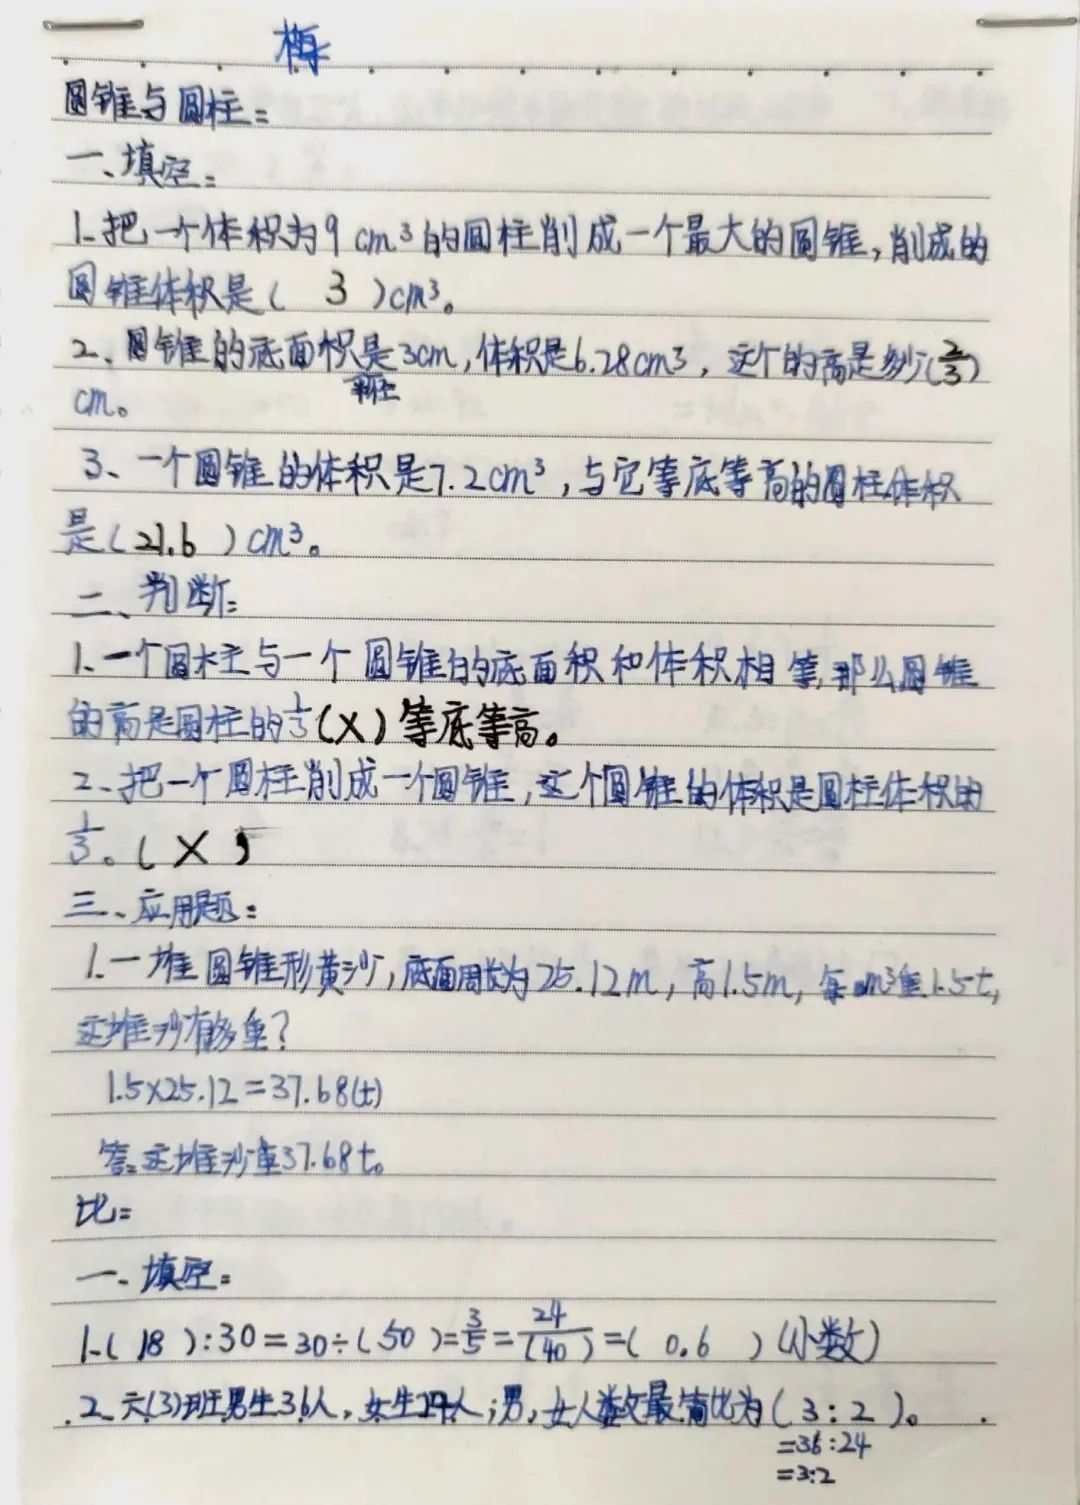 梅
圆锥与圆柱:
一、填空:
1.把一个体积为9 cm³的圆柱削成一个最大的圆锥,削成的
圆锥体积是( 3 )cm³。
2、圆锥的底面积是3cm,体积是6.28cm³,这个的高是多少(2/3)
半径
cm。
3、一个圆锥的体积是7.2cm³,与它等底等高的圆柱体积
是(21.6 )cm³。
二、判断:
1.一个圆柱与一个圆锥的底面积和体积相等,那么圆锥
的高是圆柱的1/3(X)等底等高。
2、把一个圆柱削成一个圆锥,这个圆锥的体积是圆柱体积的
1/3。( X )
三、应用题:
1.一堆圆锥形黄沙,底面周长为25.12m,高1.5m,每m³重1.5t,
这堆沙有多重?
1.5×25.12=37.68(t)
答:这堆沙重37.68t。
比:
一、填空:
1.( 18 ):30=30÷(50)=3/5=24/(40)=( 0.6 )(小数)
2、六(3)班男生36人,女生24人;男,女人数最简比为(3:2)。
=36:24
=3:2